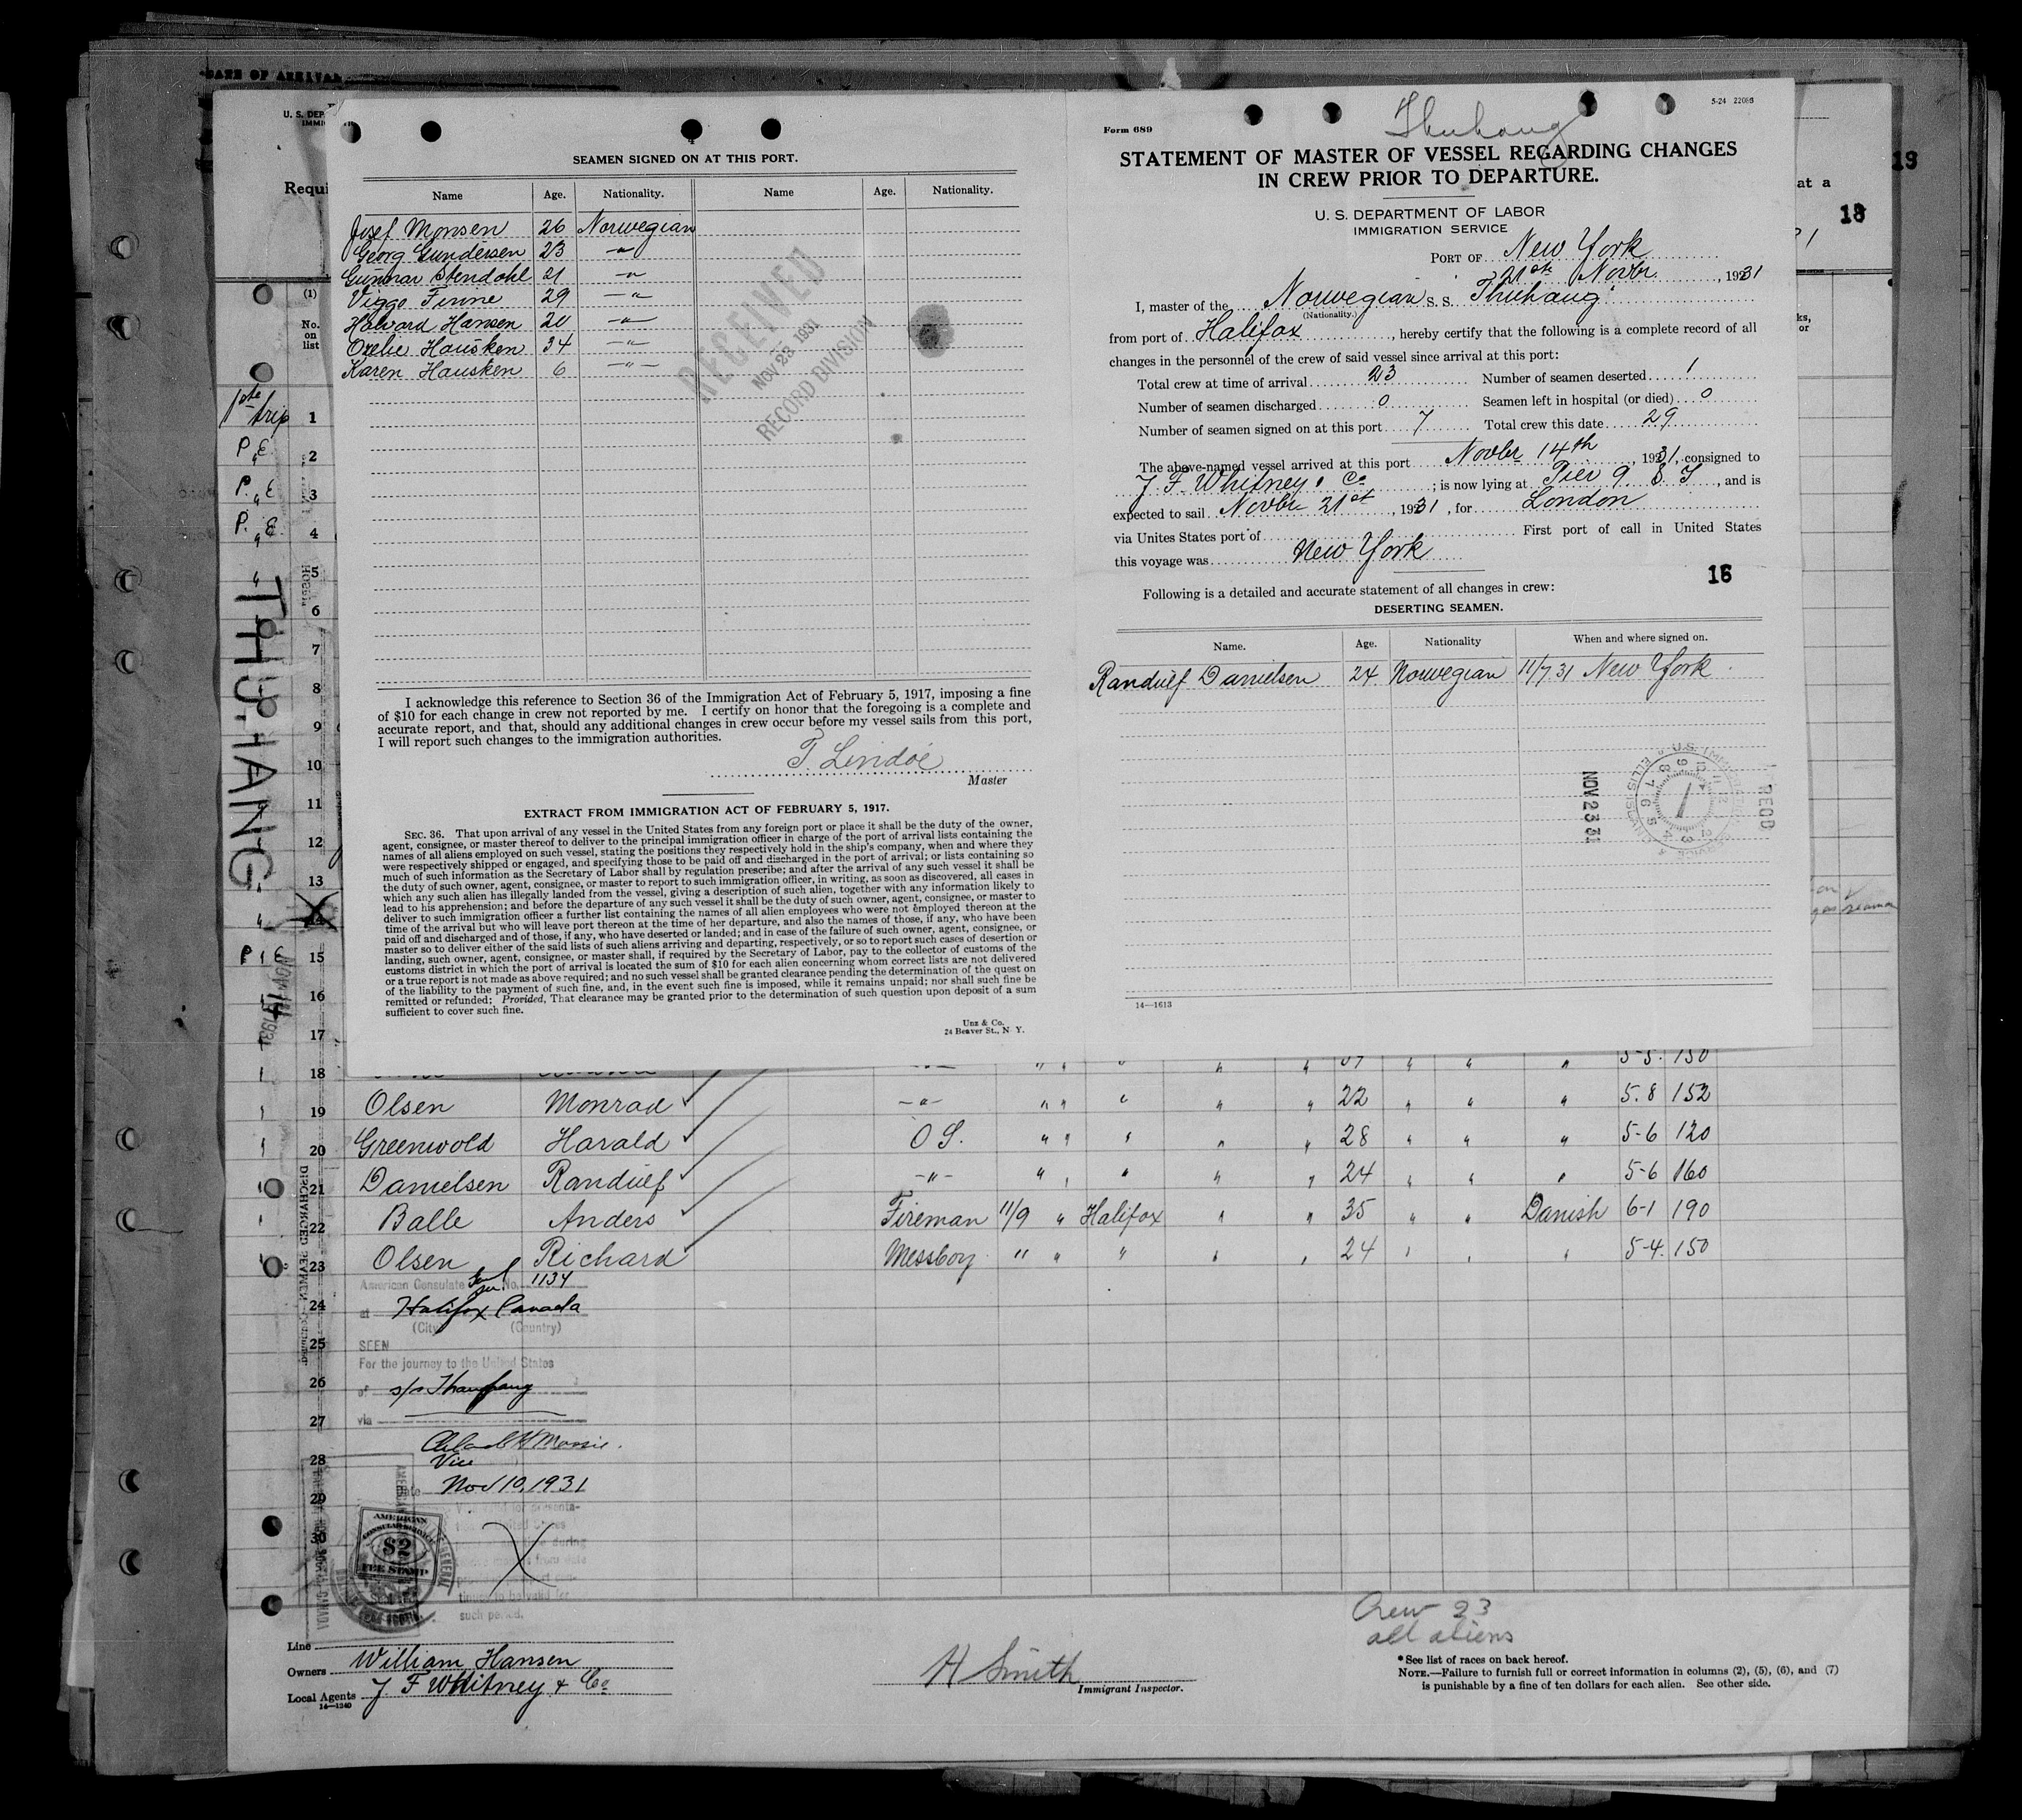 DATE OF ARRIVAL
U. S. DEP
IMMI
Requi
at a
13
18
4
SEAMEN SIGNED ON AT THIS PORT.
Name Age. Nationality. Name Age. Nationality.
Josef Monsen 26 Norwegian
Georg Gundersen 23 -"-
Gunnar Stendahl 21 -"-
Viggo Finne 29 -"-
Halvard Hansen 20 -"-
Ozelie Hausken 34 -"-
Karen Hausken 6 -"-
RECEIVED
NOV 23 1931
RECORD DIVISION
I acknowledge this reference to Section 36 of the Immigration Act of February 5, 1917, imposing a fine
of $10 for each change in crew not reported by me. I certify on honor that the foregoing is a complete and
accurate report, and that, should any additional changes in crew occur before my vessel sails from this port,
I will report such changes to the immigration authorities.
T. Lindöe
Master
EXTRACT FROM IMMIGRATION ACT OF FEBRUARY 5, 1917.
SEC. 36. That upon arrival of any vessel in the United States from any foreign port or place it shall be the duty of the owner,
agent, consignee, or master thereof to deliver to the principal immigration officer in charge of the port of arrival lists containing the
names of all aliens employed on such vessel, stating the positions they respectively hold in the ship's company, when and where they
were respectively shipped or engaged, and specifying those to be paid off and discharged in the port of arrival; or lists containing so
much of such information as the Secretary of Labor shall by regulation prescribe; and after the arrival of any such vessel it shall be
the duty of such owner, agent, consignee, or master to report to such immigration officer, in writing, as soon as discovered, all cases in
which any such alien has illegally landed from the vessel, giving a description of such alien, together with any information likely to
lead to his apprehension; and before the departure of any such vessel it shall be the duty of such owner, agent, consignee, or master to
deliver to such immigration officer a further list containing the names of all alien employees who were not employed thereon at the
time of the arrival but who will leave port thereon at the time of her departure, and also the names of those, if any, who have been
paid off and discharged and of those, if any, who have deserted or landed; and in case of the failure of such owner, agent, consignee, or
master so to deliver either of the said lists of such aliens arriving and departing, respectively, or so to report such cases of desertion or
landing, such owner, agent, consignee, or master shall, if required by the Secretary of Labor, pay to the collector of customs of the
customs district in which the port of arrival is located the sum of $10 for each alien concerning whom correct lists are not delivered
or a true report is not made as above required; and no such vessel shall be granted clearance pending the determination of the quest on
of the liability to the payment of such fine, and, in the event such fine is imposed, while it remains unpaid; nor shall such fine be
remitted or refunded; Provided, That clearance may be granted prior to the determination of such question upon deposit of a sum
sufficient to cover such fine.
Unz & Co.
24 Beaver St., N. Y.
Form 689
Thuhaug
5-24 22083
STATEMENT OF MASTER OF VESSEL REGARDING CHANGES
IN CREW PRIOR TO DEPARTURE.
U. S. DEPARTMENT OF LABOR
IMMIGRATION SERVICE
PORT OF New York
21st Novbr. , 1931
I, master of the Norwegian S. S. Thuhaug
(Nationality.)
from port of Halifax , hereby certify that the following is a complete record of all
changes in the personnel of the crew of said vessel since arrival at this port:
Total crew at time of arrival 23 Number of seamen deserted 1
Number of seamen discharged 0 Seamen left in hospital (or died) 0
Number of seamen signed on at this port 7 Total crew this date 29
The above-named vessel arrived at this port Novbr 14th , 1931, consigned to
J. F. Whitney & Co ; is now lying at Pier 9. S I , and is
expected to sail Novbr 21st , 1931 , for London
via Unites States port of First port of call in United States
this voyage was New York
16
Following is a detailed and accurate statement of all changes in crew:
DESERTING SEAMEN.
Name. Age. Nationality When and where signed on.
Randulf Danielsen 24 Norwegian 11/7 31 New York
NOV 23 31
RECD
U.S. IMMIGRATION SERVICE
ELLIS ISLAND
14—1613
(1)
No.
on
list
1st trip 1
P.E. 2
P. E 3
P. E. 4
5
6
7
8
9
10
11
12
13
14
P 1 E 15
16
17
THUHANG
NOV 14 1931
DISCHARGED SEAMEN
18 5-5. 150
19 Olsen Monrad -"- " " " " " 22 " " " 5.8 152
20 Greenwold Harald O S. " " " " " 28 " " " 5-6 120
21 Danielsen Randulf -"- " " " " " 24 " " " 5-6 160
22 Balle Anders Fireman 11/9 " Halifax " " 35 " " Danish 6-1 190
23 Olsen Richard Messboy " " " " " 24 " " " 5-4. 150
24
25
26
27
28
29
30
American Consulate Genl
No. 1134
at Halifax Canada
(City) (Country)
SEEN
For the journey to the United States
of s/s Thuhaug
via
Vice
Date Nov 10, 1931
such period.
AMERICAN
CONSULAR SERVICE
$2
FEE STAMP
Line
Owners William Hansen
Local Agents J F Whitney & Co
14—1240
H Smith
Immigrant Inspector.
Crew 23
all aliens
* See list of races on back hereof.
NOTE.—Failure to furnish full or correct information in columns (2), (5), (6), and (7)
is punishable by a fine of ten dollars for each alien. See other side.